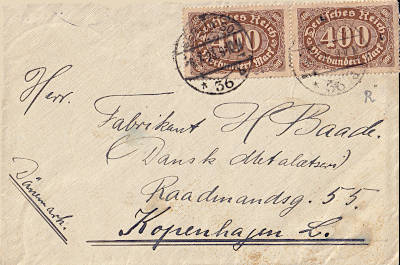 Deutsches Reich Deutsches Reich
400 400
Vierhundert Mark Vierhundert Mark
* 36 * 36
R
Herr.
Fabrikant H Baade.
(Dansk Metalatseri)
Raadmandsg. 55.
Kopenhagen L.
Dänemark.